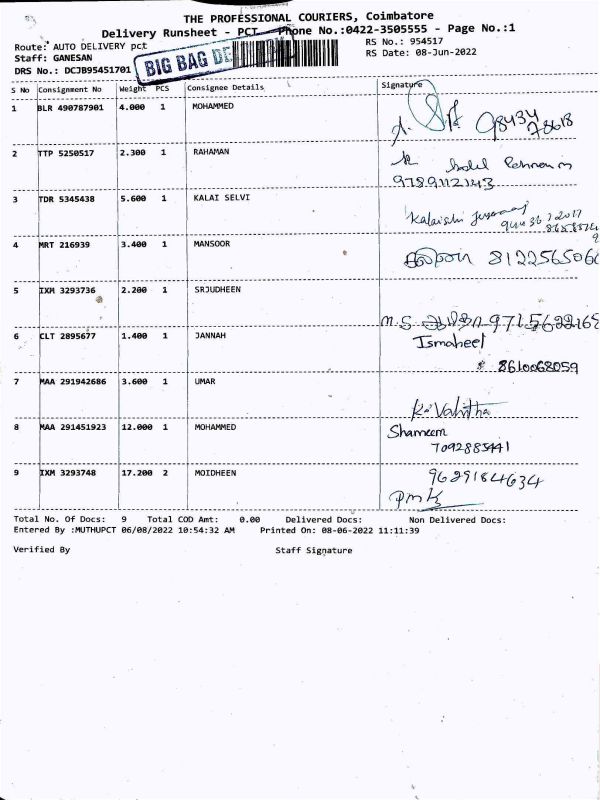 THE PROFESSIONAL COURIERS, Coimbatore
Delivery Runsheet - PCT Phone No.:0422-3505555 - Page No.:1
Route: AUTO DELIVERY pct RS No.: 954517
Staff: GANESAN RS Date: 08-Jun-2022
DRS No.: DCJB95451701 BIG BAG
S No Consignment No Weight PCS Consignee Details Signature
1 BLR 490787901 4.000 1 MOHAMMED
98434
78618
2 TTP 5250517 2.300 1 RAHAMAN
9789112143
3 TDR 5345438 5.600 1 KALAI SELVI
4 MRT 216939 3.400 1 MANSOOR
8122565060
5 IXM 3293736 2.200 1 SRJUDHEEN
M.S. 9715622168
6 CLT 2895677 1.400 1 JANNAH Ismaheel
8610068059
7 MAA 291942686 3.600 1 UMAR
K. Vahitha
8 MAA 291451923 12.000 1 MOHAMMED Shameem
7092885441
9 IXM 3293748 17.200 2 MOIDHEEN 9629184634
Total No. Of Docs: 9 Total COD Amt: 0.00 Delivered Docs: Non Delivered Docs:
Entered By :MUTHUPCT 06/08/2022 10:54:32 AM Printed On: 08-06-2022 11:11:39
Verified By Staff Signature